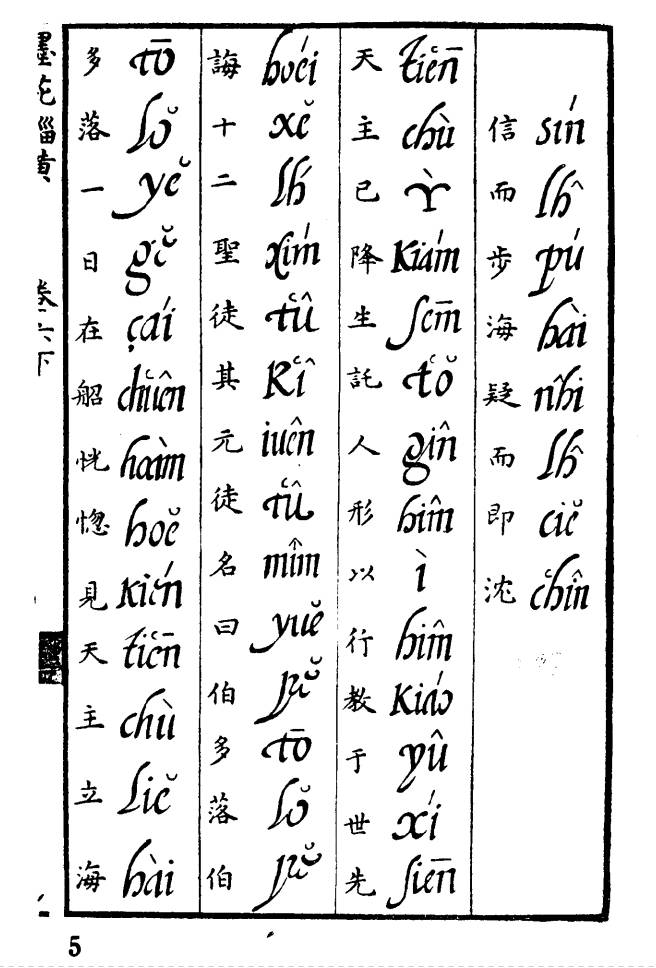 信而步海疑而即沈
sín lĥ pú hài nĥi lĥ ciĕ cʻhîn
天主已降生託人形以行教于世先
tʻiēn chù ỳ kiám sēm tʻŏ gîn hîm ì hîm kiáo yû xí siēn
誨十二聖徒其元徒名曰伯多落伯
hoéi xĕ lh́ xím tʻû kʻî iuên tʻû mîm yuĕ pĕ tō lŏ pĕ
多落一日在船恍惚見天主立海
tō lŏ yĕ gĕ çái chʻuên hoàm hoĕ kién tʻiēn chù liĕ hài
墨苑緇黃 卷六下
5